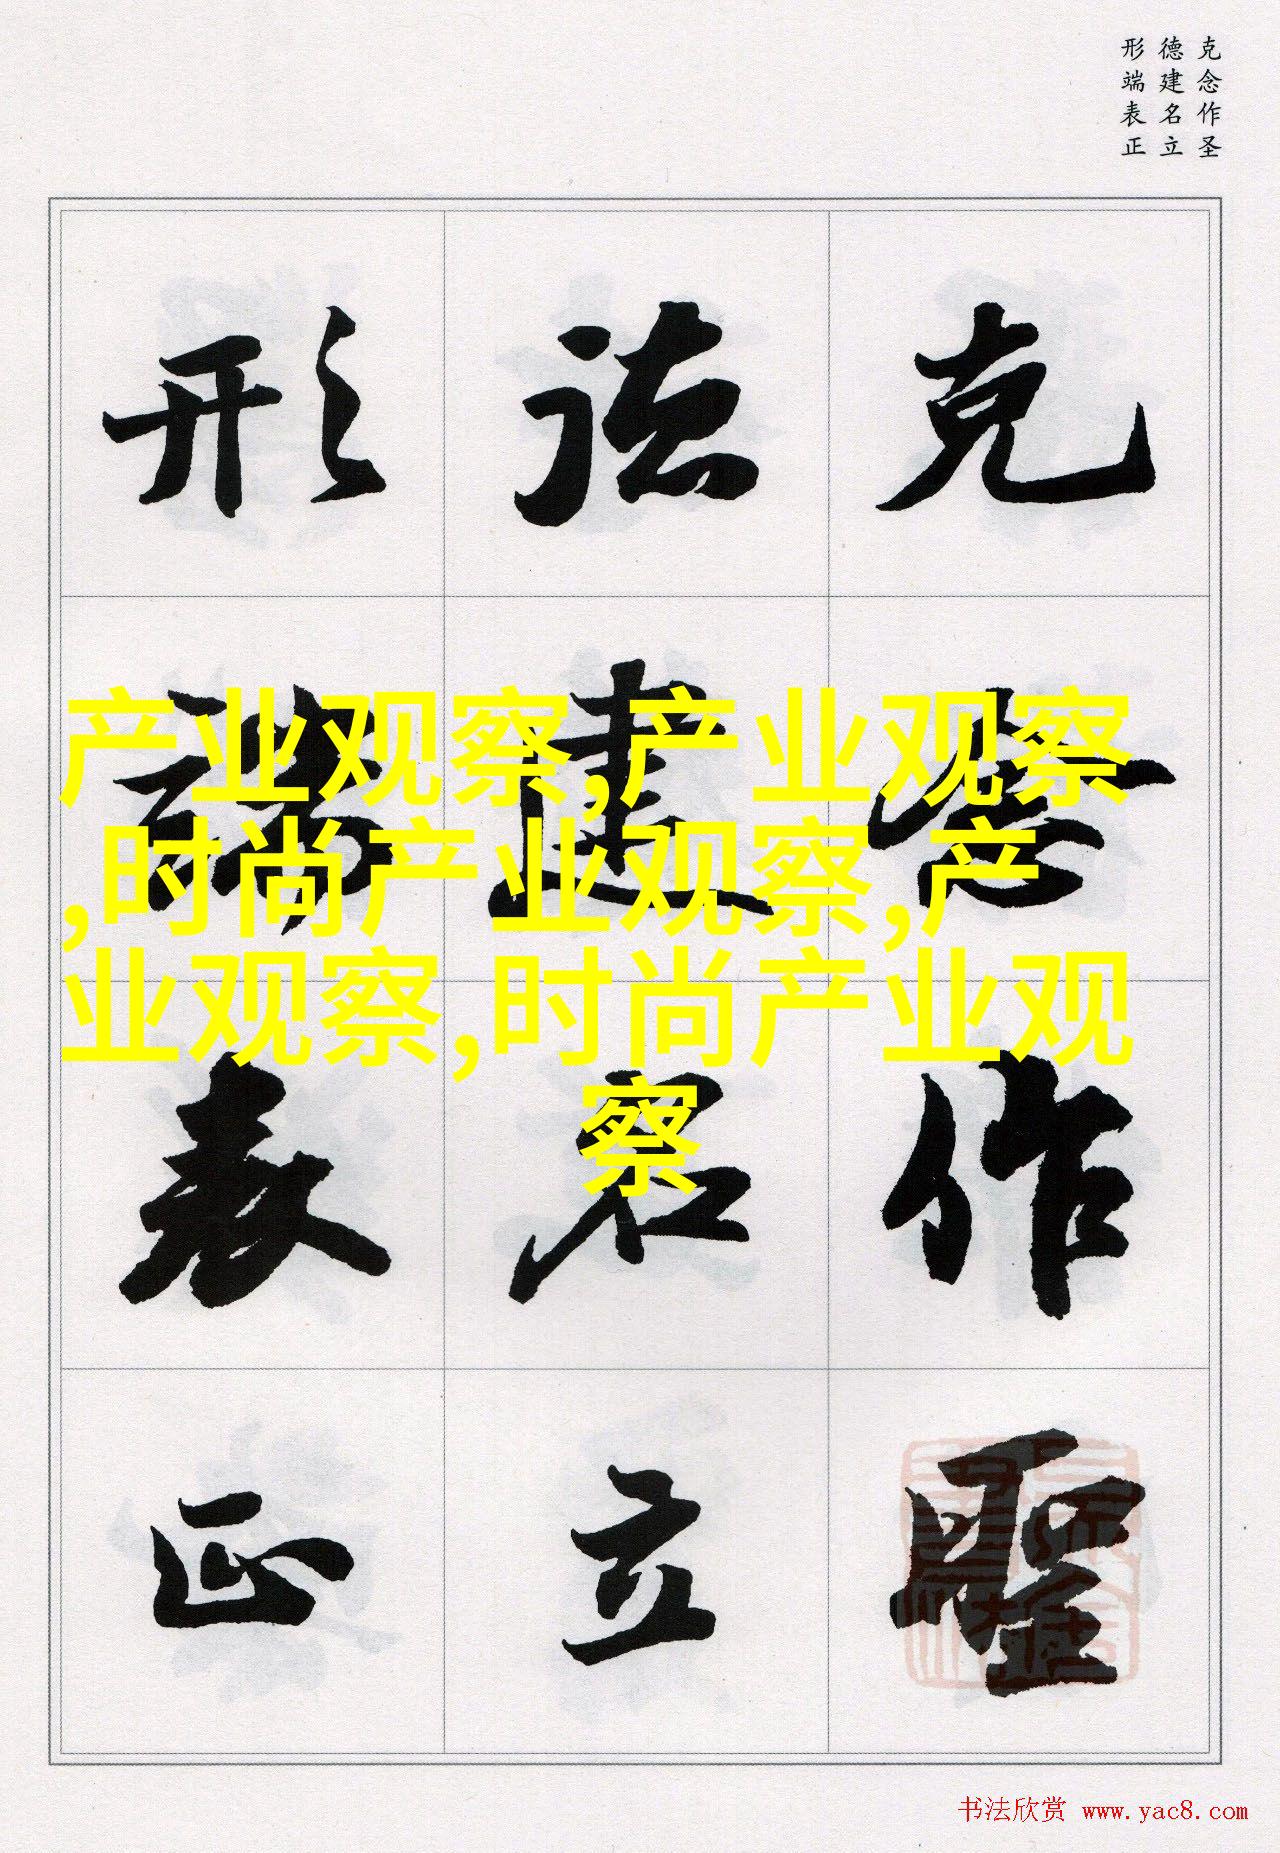 克念作圣
德建名立
形端表正
克念作聖
德建名立
形端表正
产业观察,产业观察
,时尚产业观察,产
业观察,时尚产业观
察
书法欣赏 www.yac8.com